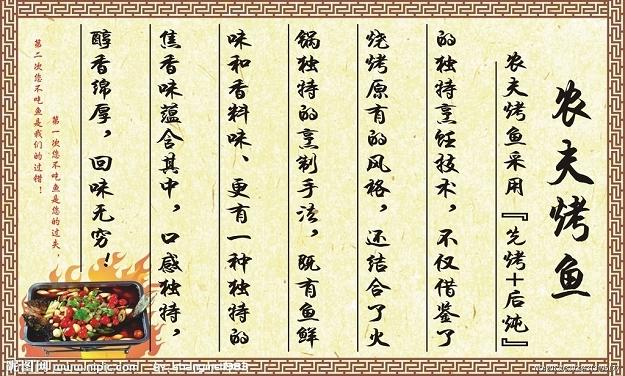 农夫烤鱼
农夫烤鱼采用『先烤+后炖』
的独特烹饪技术，不仅借鉴了
烧烤原有的风格，还结合了火
锅独特的烹制手法，既有鱼鲜
味和香料味、更有一种独特的
焦香味蕴含其中，口感独特，
醇香绵厚，回味无穷！
第一次您不吃鱼是您的过失，
第二次您不吃鱼是我们的过错！
昵图网 www.nipic.com